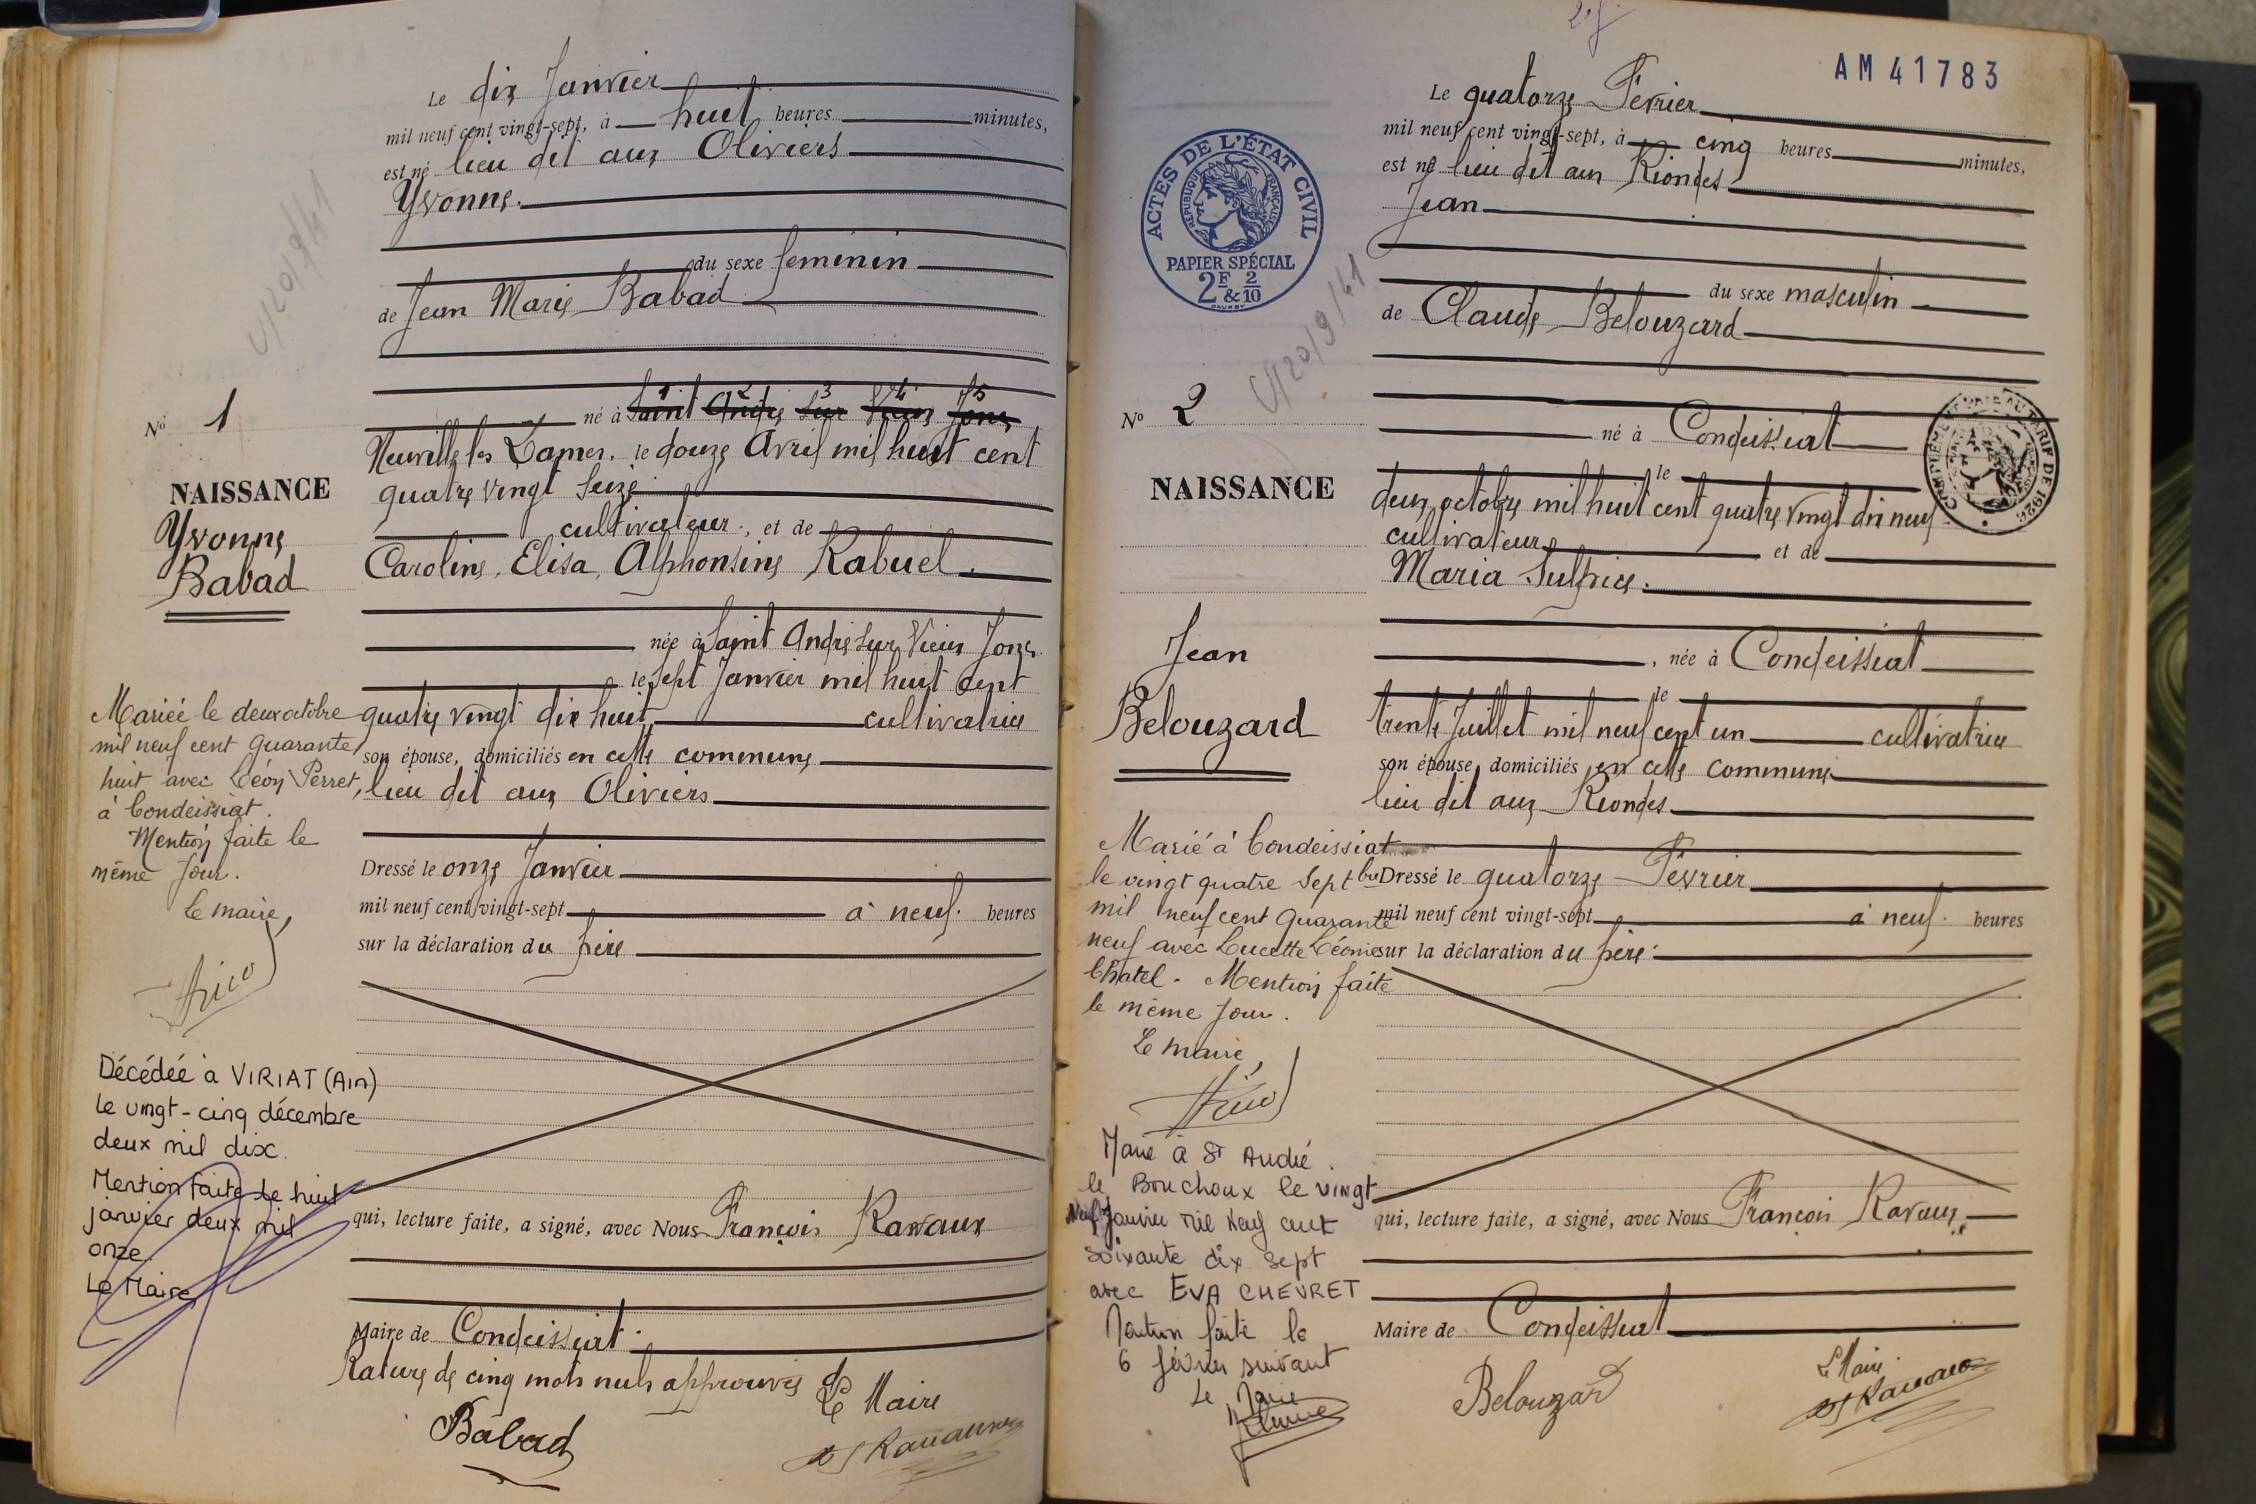 Le dix Janvier
mil neuf cent vingt-sept, à huit heures minutes,
est né lieu dit aux Oliviers
Yvonne.
du sexe feminin
de Jean Marie Babad
né à Saint André sur Vieux Jonc
1 2 3 4 5
Neuville les Dames, le douze Avril mil huit cent
quatre vingt seize
cultivateur, et de
Caroline, Elisa, Alphonsine Rabuel.
née à Saint André sur Vieux Jonc
le sept Janvier mil huit cent
quatre vingt dix huit, cultivatrice
son épouse, domiciliés en cette commune
lieu dit aux Oliviers
Dressé le onze Janvier
mil neuf cent vingt-sept à neuf heures
sur la déclaration du père
qui, lecture faite, a signé, avec Nous François Ravaux
Maire de Condeissiat.
Rature de cinq mots nuls approuvés
Le Maire
Babad
Ravaux
No 1
NAISSANCE
Yvonne
Babad
Mariée le deux octobre
mil neuf cent quarante
huit avec Léon Perret,
à Condeissiat.
Mention faite le
même jour.
Le maire,
Décédée à VIRIAT (Ain)
le vingt-cinq décembre
deux mil dix.
Mention faite le huit
janvier deux mil
onze.
Le Maire
AM 41783
Le quatorze Février
mil neuf cent vingt-sept, à cinq heures minutes,
est né lieu dit aux Riondes
Jean
du sexe masculin
de Claude Belouzard
né à Condeissiat
le
deux octobre mil huit cent quatre vingt dix neuf
cultivateur, et de
Maria Sulpice.
, née à Condeissiat
le
trente Juillet mil neuf cent un cultivatrice
son épouse, domiciliés en cette commune
lieu dit aux Riondes
Dressé le quatorze Février
mil neuf cent vingt-sept à neuf heures
sur la déclaration du père
qui, lecture faite, a signé, avec Nous François Ravaux
Maire de Condeissiat
Le Maire
Belouzard
Ravaux
ACTES DE L'ÉTAT CIVIL
RÉPUBLIQUE FRANÇAISE
PAPIER SPÉCIAL
2F & 2/10
20/9/41
COMPLÉMENT AU TARIF DE 1926
No 2
NAISSANCE
Jean
Belouzard
Marié à Condeissiat
le vingt quatre Septbre
mil neuf cent quarante
neuf avec Lucette Léonie
Chatel. Mention faite
le même jour.
Le maire,
Marié à St André
le Bouchoux le vingt
neuf Janvier mil neuf cent
soixante dix sept
avec EVA CHEVRET
Mention faite le
6 février suivant
Le Maire